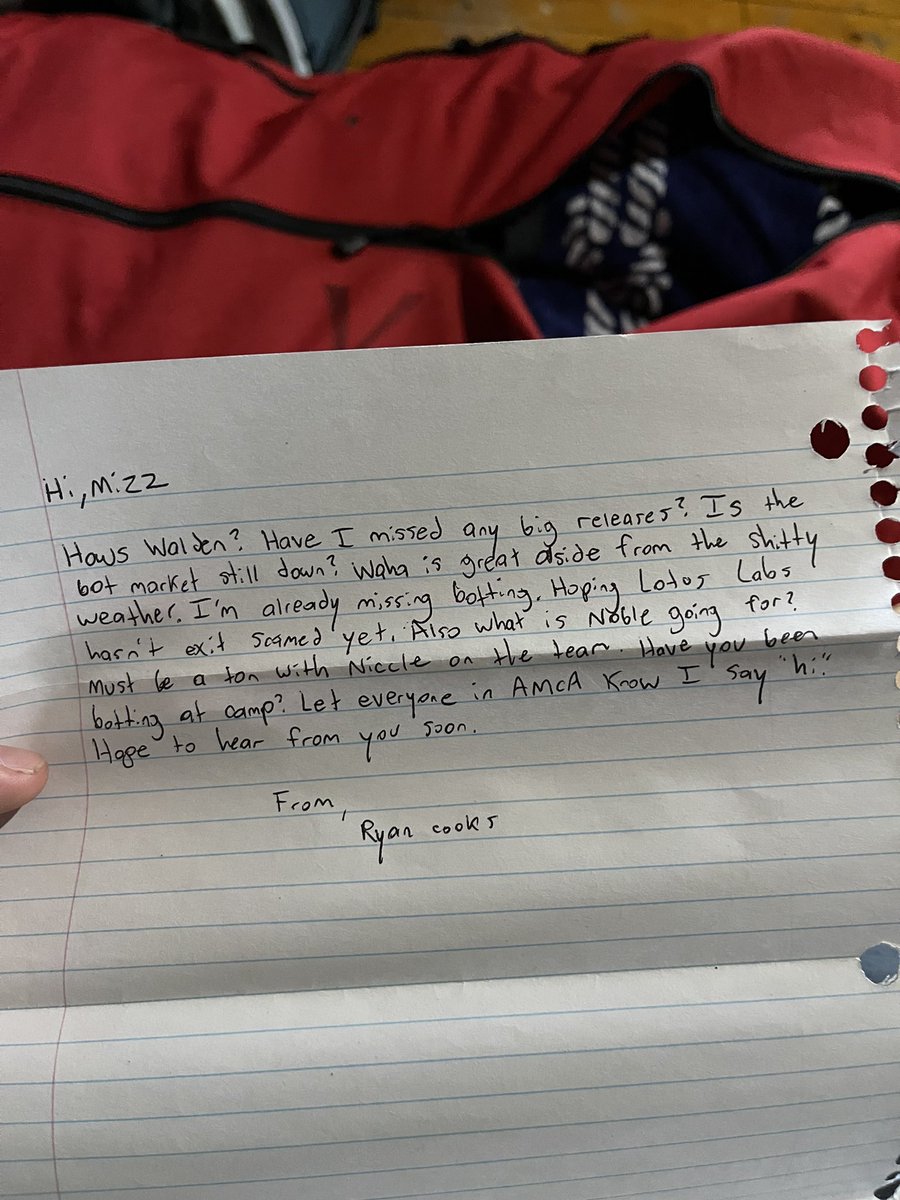 Hi, Mizz
Hows Walden? Have I missed any big releases? Is the
bot market still down? Waha is great aside from the shitty
weather. I'm already missing botting. Hoping Lotus Labs
hasn't exit scamed yet. Also what is Noble going for?
Must be a ton with Niccle on the team. Have you been
botting at camp? Let everyone in AMCA know I say "hi."
Hope to hear from you soon.
From,
Ryan cooks